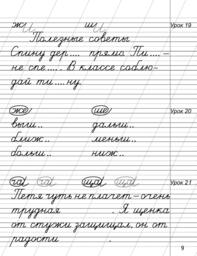 жи ши Урок 19
Полезные советы
Спину дер.... прямо. Пи.... –
не спе..... . В классе соблю-
дай ти....ну.
же ше Урок 20
выш.. дальш..
ближ.. меньш..
больш.. ниж..
ча ча ща ща Урок 21
Петя чуть не плачет – очень
трудная . Я щенка
от стужи защищал, он от
радости .
9